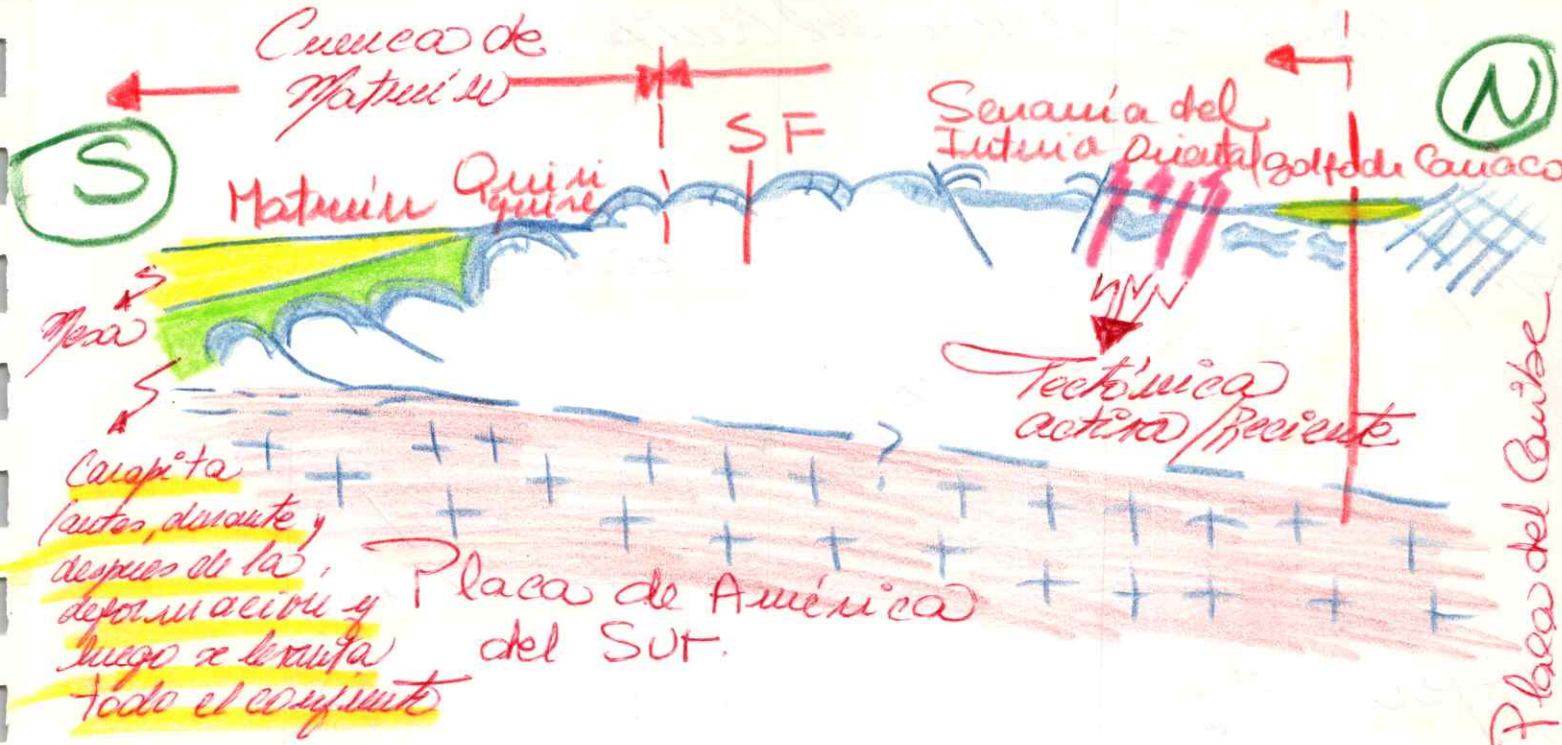 Cuenca de
Maturín
S
Maturín
Quiri
quire
SF
Serranía del
Interior Oriental
golfo de Cariaco
N
Mesa
Tectónica
activa/Reciente
?
Carapita
(antes, durante y
despues de la
deformación y
luego se levanta
todo el conjunto
Placa de América
del Sur.
Placa del Caribe